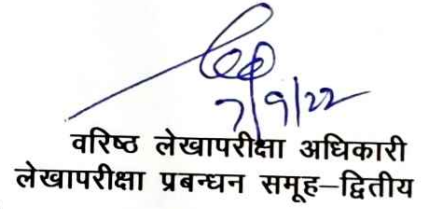 7/9/22
वरिष्ठ लेखापरीक्षा अधिकारी
लेखापरीक्षा प्रबन्धन समूह–द्वितीय